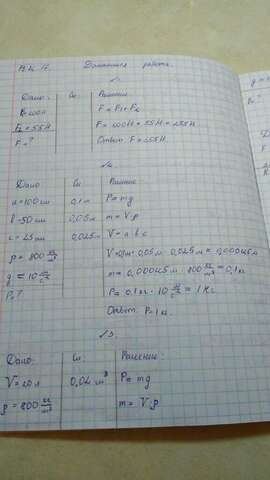 Домашняя работа.
Дано: Си Решение
F₁=200Н F = F₁+F₂
F₂ = 55Н F = 200Н + 55Н = 255Н
F-? Ответ F=255Н.
Дано Си Решение
a=100мм 0,1м P=mg
b-50мм 0,05м m = V·ρ
c = 25мм 0,025м V = a·b·c
ρ = 800 кг/м³ V=0,1м·0,05м·0,025м=0,00045м
g = 10 м/с² m = 0,00045м · 800 кг/м³ = 0,1кг
P-? P= 0,1кг · 10 = 1Н
Ответ. P=1Н.
Дано: Си Решение:
V=20л 0,02м³ P=mg
ρ = 800 кг/м³ m = V·ρ